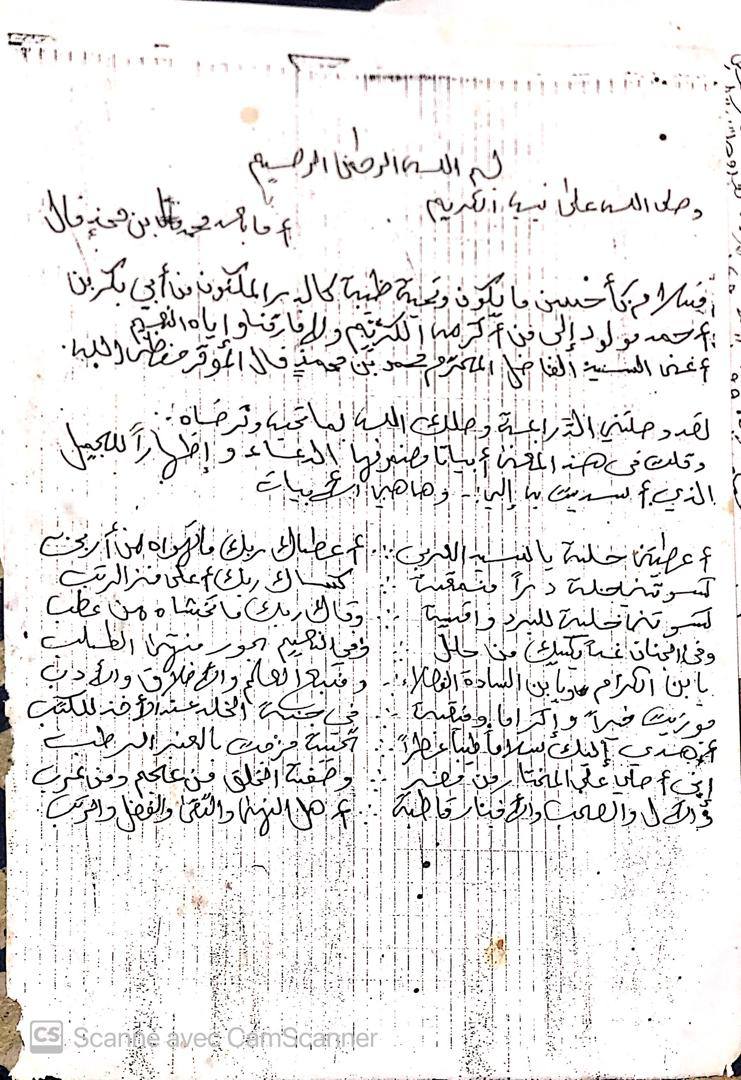 بسم الله الرحمن الرحيم
وصلى الله على نبيه الكريم
محمد بن محمذن فال
فسلام كأحسن ما يكون وتحية طيبة كالدر المكنون من أبي بكر بن
أحمد مولود إلى من أكرمه الكريم ولا فارقنا وإياه النعيم
أعني السيد الفاضل المحترم محمد بن محمذن فال الموقر حفظه الله
لقد وصلتني الدراعة وصلك الله لما تحبه وترضاه
وقلت في هذا المعنى أبياتا مضمونها الدعاء وإظهاراً للجميل
الذي أسديت به إلي وها هي الأبيات
أعطيتني حلية يا السيد العربي ∴ أعطاك ربك ما تهواه من أرب
كسوتني حلة دراً منمقة ∴ كساك ربك أعلى منز الرتب
كسوتنيها حلية للبرد واقية ∴ وقاك ربك ما تخشاه من عطب
وفي الجنان غدا يكسيك من حلل ∴ وفي النعيم بحور منتهى الطلب
يا بن الكرام ويا بن السادة الفضلا ∴ ومنبع العلم والأخلاق والأدب
جوزيت خيراً وإكراما ∴ في جنة الخلد عند الأخذ للكتب
أهدي إليك سلاما طيبا عطراً ∴ تحية مزجت بالعنبر الرطب
إني أصلي على المختار من مضر ∴ وصفوة الخلق من عجم ومن عرب
والآل والصحب قاطبة ∴ أهل النهى والتقى والفضل والحرب
CS Scanné avec CamScanner